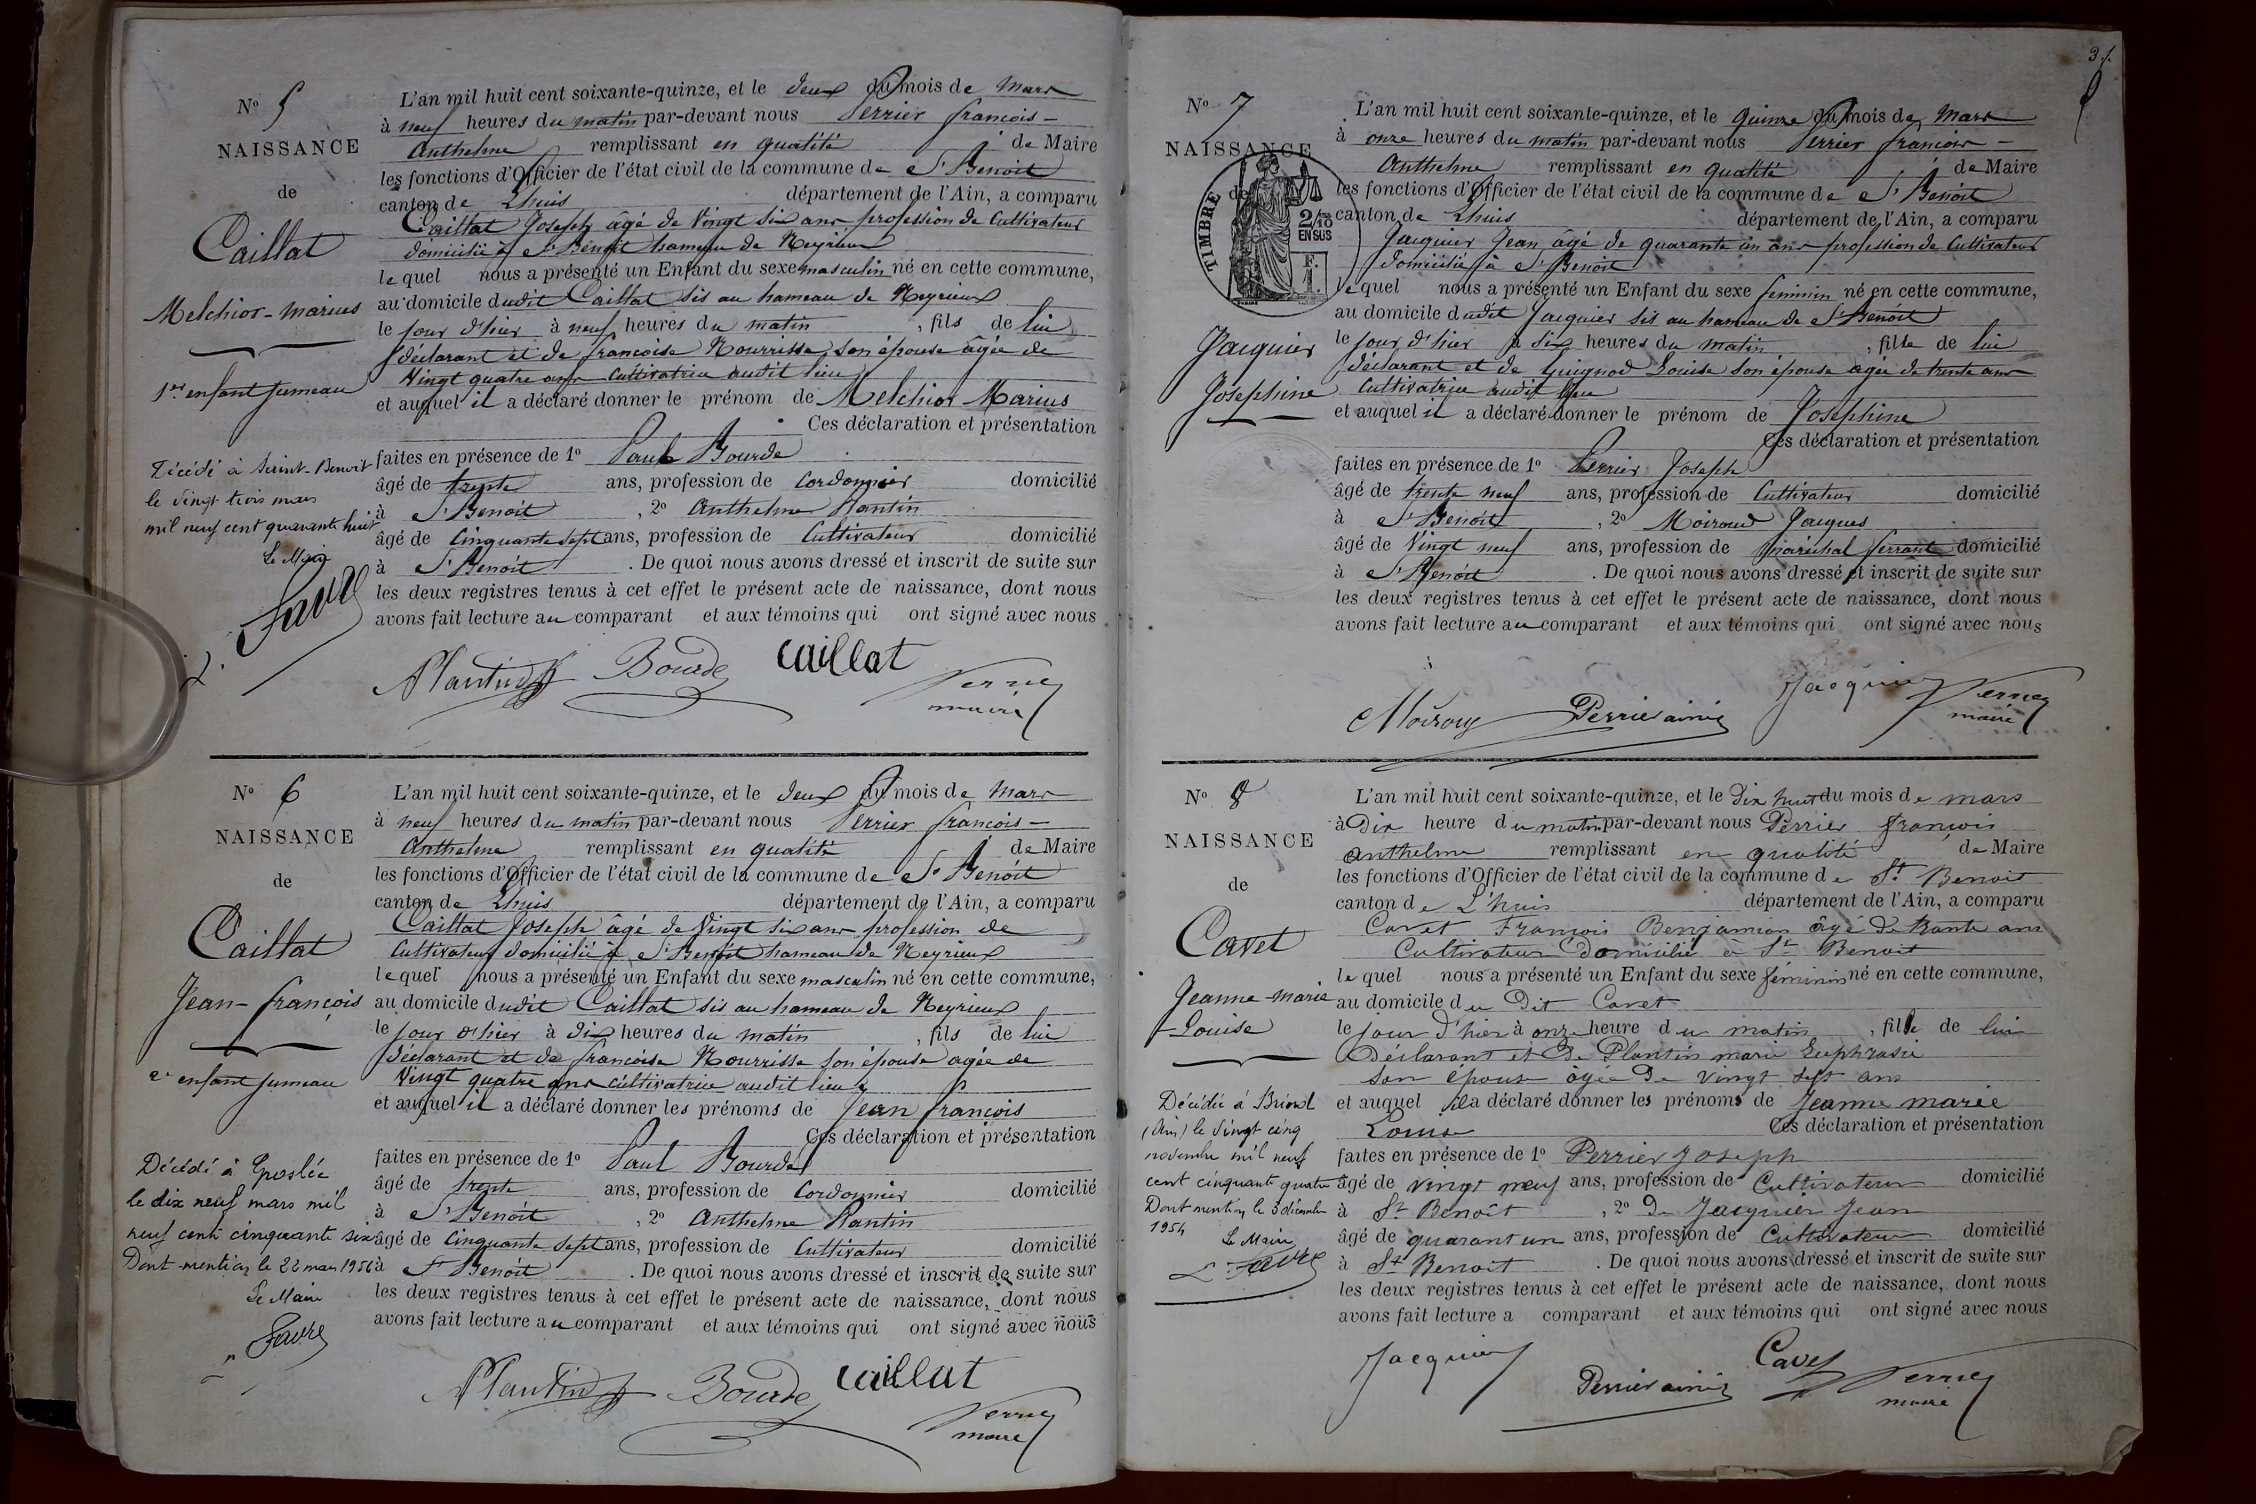 N° 5
NAISSANCE
de
Caillat
Melchior-Marius
1er enfant jumeau
Décédé à Saint-Benoit
le vingt trois mars
mil neuf cent quarante huit
Le Maire
Favre
L'an mil huit cent soixante-quinze, et le deux du mois de Mars
à neuf heures du matin par-devant nous Perrier françois-
Anthelme remplissant en qualité de Maire
les fonctions d'Officier de l'état civil de la commune de St Benoit
canton de Lhuis département de l'Ain, a comparu
Caillat Joseph âgé de Vingt six ans profession de Cultivateur
domicilié à St Benoit hameau de Neyrieux
lequel nous a présenté un Enfant du sexe masculin né en cette commune,
au domicile dudit Caillat sis au hameau de Neyrieux
le jour d'hier à neuf heures du matin, fils de lui
déclarant et de françoise Nourrisse son épouse âgée de
Vingt quatre ans cultivatrice audit lieu
et auquel il a déclaré donner le prénom de Melchior Marius
Ces déclaration et présentation
faites en présence de 1° Paul Bourde
âgé de trente ans, profession de Cordonnier domicilié
à St Benoit, 2° Anthelme Plantin
âgé de Cinquante sept ans, profession de Cultivateur domicilié
à St Benoit. De quoi nous avons dressé et inscrit de suite sur
les deux registres tenus à cet effet le présent acte de naissance, dont nous
avons fait lecture au comparant et aux témoins qui ont signé avec nous
APlantin Bourde Caillat
maire
N° 6
NAISSANCE
de
Caillat
Jean-françois
2e enfant jumeau
Décédé à
le dix neuf mars mil
neuf cent cinquante six
Dont mention le 22 mars 1956
Le Maire
Favre
L'an mil huit cent soixante-quinze, et le deux du mois de Mars
à neuf heures du matin par-devant nous Perrier françois-
Anthelme remplissant en qualité de Maire
les fonctions d'Officier de l'état civil de la commune de St Benoit
canton de Lhuis département de l'Ain, a comparu
Caillat Joseph âgé de Vingt six ans profession de
Cultivateur domicilié à St Benoit hameau de Neyrieux
lequel nous a présenté un Enfant du sexe masculin né en cette commune,
au domicile dudit Caillat sis au hameau de Neyrieux
le jour d'hier à dix heures du matin, fils de lui
déclarant et de françoise Nourrisse son épouse agée de
Vingt quatre ans cultivatrice audit lieu
et auquel il a déclaré donner les prénoms de Jean françois
Ces déclaration et présentation
faites en présence de 1° Paul Bourde
âgé de trente ans, profession de Cordonnier domicilié
à St Benoit, 2° Anthelme Plantin
âgé de Cinquante sept ans, profession de Cultivateur domicilié
à St Benoit. De quoi nous avons dressé et inscrit de suite sur
les deux registres tenus à cet effet le présent acte de naissance, dont nous
avons fait lecture au comparant et aux témoins qui ont signé avec nous
APlantin Bourde Caillat
maire
3
N° 7
NAISSANCE
de
TIMBRE
2/10
EN SUS
F.
1.
Jacquier
Josephine
L'an mil huit cent soixante-quinze, et le Quinze du mois de Mars
à onze heures du matin par-devant nous Perrier françois-
Anthelme remplissant en qualité de Maire
les fonctions d'Officier de l'état civil de la commune de St Benoit
canton de Lhuis département de l'Ain, a comparu
Jacquier Jean âgé de quarante un ans profession de Cultivateur
domicilié à St Benoit
lequel nous a présenté un Enfant du sexe feminin né en cette commune,
au domicile dudit Jacquier sis au hameau de St Benoit
le jour d'hier à six heures du matin, fille de lui
déclarant et de Guignod Louise son épouse agée de trente ans
Cultivatrice audit lieu
et auquel il a déclaré donner le prénom de Josephine
Ces déclaration et présentation
faites en présence de 1° Perrier Joseph
âgé de trente neuf ans, profession de Cultivateur domicilié
à St Benoit, 2° Moiroud Jacques
âgé de Vingt neuf ans, profession de Maréchal ferrant domicilié
à St Benoit. De quoi nous avons dressé et inscrit de suite sur
les deux registres tenus à cet effet le présent acte de naissance, dont nous
avons fait lecture au comparant et aux témoins qui ont signé avec nous
Perrier ainé Jacquier
maire
N° 8
NAISSANCE
de
Cavet
Jeanne-Marie
Louise
Décédée à Briord
(Ain) le vingt cinq
novembre mil neuf
cent cinquante quatre
Dont mention le 3 décembre
1954
Le Maire
L Favre
L'an mil huit cent soixante-quinze, et le Dix huit du mois de mars
à Dix heure du matin par-devant nous Perrier françois
anthelme remplissant en qualité de Maire
les fonctions d'Officier de l'état civil de la commune de St Benoit
canton de L'huis département de l'Ain, a comparu
Cavet François Benjamin âgé de trante ans
Cultivateur Domicilié à St Benoit
lequel nous a présenté un Enfant du sexe féminin né en cette commune,
au domicile du Dit Cavet
le jour d'hier à onze heure du matin, fille de lui
Déclarant et De Plantin marie Euphrasie
son épouse âgée De vingt sept ans
et auquel il a déclaré donner les prénoms de Jeanne marie
Louise Ces déclaration et présentation
faites en présence de 1° Perrier Joseph
âgé de vingt neuf ans, profession de Cultivateur domicilié
à St Benoît, 2° De Jacquier Jean
âgé de quarant un ans, profession de Cultivateur domicilié
à St Benoit. De quoi nous avons dressé et inscrit de suite sur
les deux registres tenus à cet effet le présent acte de naissance, dont nous
avons fait lecture a comparant et aux témoins qui ont signé avec nous
Jacquier Perrier ainé Cavet
maire